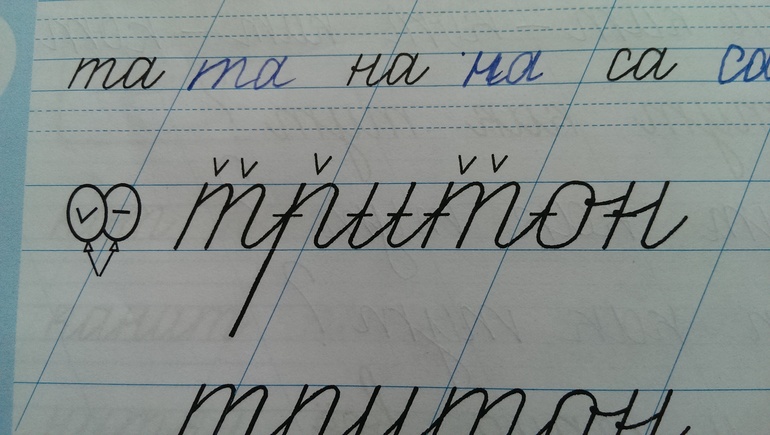 та та на на са са
тритон
тритон